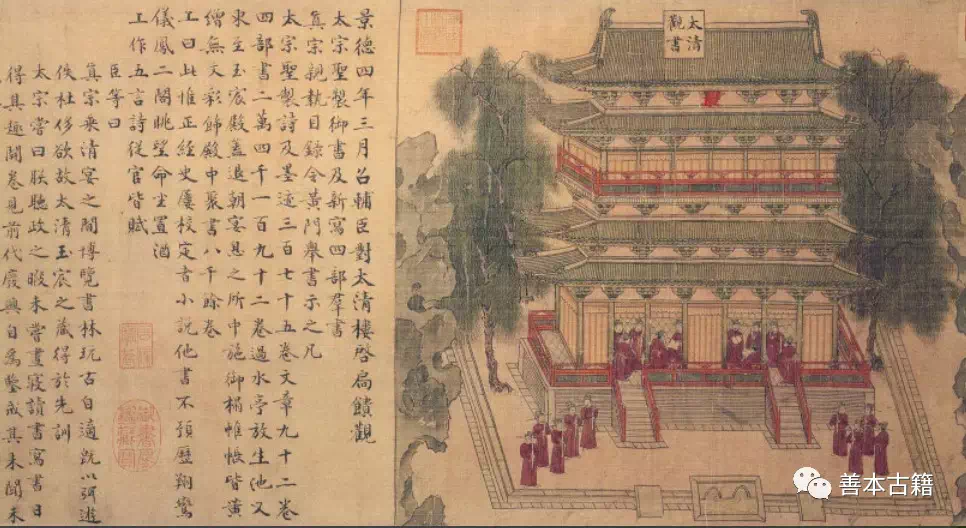 太清
觀書
景德四年三月召輔臣對太清樓啓扃饋觀
太宗聖製御書及新寫四部羣書
真宗親執目錄令黃門舉書示之凡
太宗聖製詩及墨迹三百七十五卷文章九十二卷
四部書二萬四千一百九十二卷過水亭放生池又
東至玉宸殿蓋退朝宴息之所中施御榻帷帳皆黃
繒無文彩歸殿中聚書八千餘卷
上曰此惟正經史屢校定者小說他書不預歷翔鸞
儀鳳二閣眺望命坐置酒
上作五言詩從官皆賦
臣等曰
真宗乘清宴之間博覽書林玩古自適既以弭遊
佚杜侈欲故太清玉宸之藏得於先訓
太宗嘗曰朕聽政之暇未嘗晝寢讀書寫書日
得其趣開卷見前代廢興自為鑒戒其未聞未
善本古籍